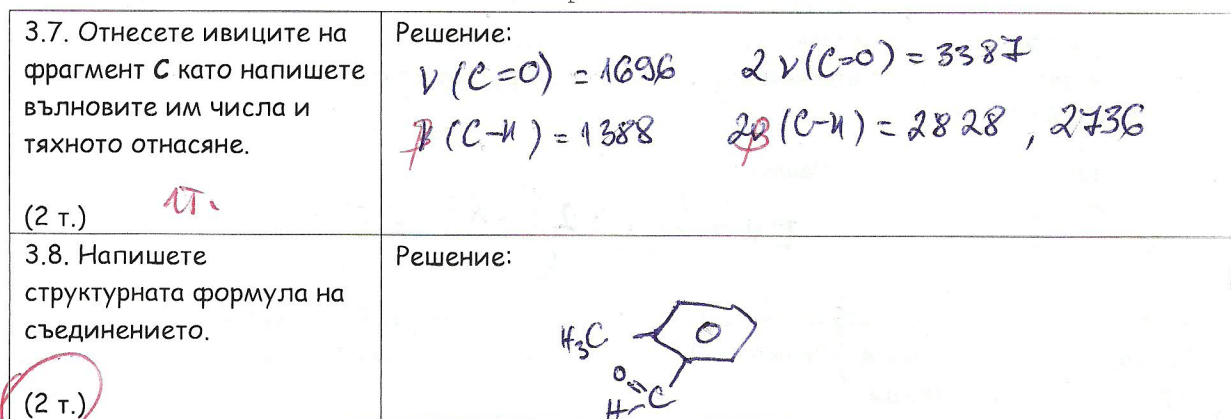 3.7. Отнесете ивиците на
фрагмент С като напишете
вълновите им числа и
тяхното отнасяне.
(2 т.)
1т.
Решение:
ν (C=O) = 1696 2 ν (C=O) = 3387
β (C-H) = 1388 2β (C-H) = 2828 , 2736
3.8. Напишете
структурната формула на
съединението.
(2 т.)
Решение:
H₃C
O
H-C